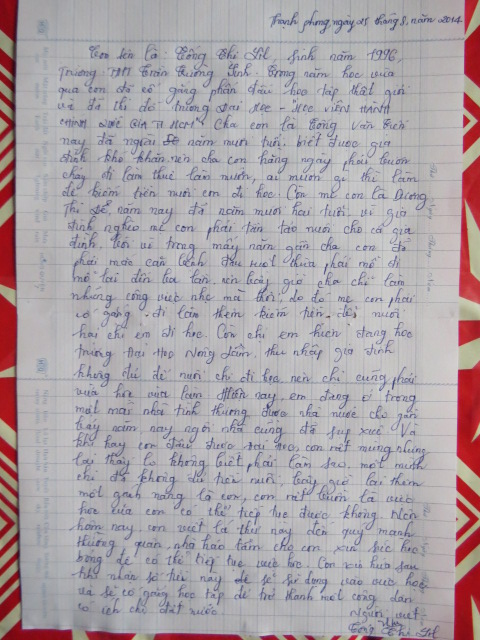 Thanh phong ngày 25 tháng 8, năm 2014
Con tên là: Tống Thị Lil, sinh năm 1996,
Trường THPT Trần Trường Sinh. Trong năm học vừa
qua con đã cố gắng phấn đấu học tập thật giỏi
và đã thi đỗ trường ĐẠI HỌC - HỌC VIỆN HÀNH
CHÍNH QUỐC GIA TP HCM". Cha con là Tống Văn
nay đã ngoài năm mươi tuổi, biết được gia
đình khó khăn nên cha con hằng ngày phải buôn
chạy đi làm thuê làm mướn, ai mướn gì thì làm
để kiếm tiền nuôi con đi học. Còn mẹ con là Dương
Thị Dể, năm nay đã năm mươi hai tuổi, vì gia
đình nghèo mẹ con phải tần tảo nuôi cho cả gia
đình, bởi vì trong mấy năm gần cha con đã
phải mắc căn bệnh đau ruột thừa phải mổ đi
mổ lại đến ba lần nên bây giờ cha chỉ làm
những công việc nhẹ mà thôi, do đó mẹ con phải
cố gắng đi làm thêm kiếm tiền để nuôi
hai chị em đi học. Còn chị em hiện đang học
trường Đại Học Nông Lâm, thu nhập gia đình
không đủ để nuôi chị đi học nên chị cũng phải
vừa học vừa làm. Hiện nay em đang ở trong
một mái nhà tình thương được nhà nước cho gần
bảy năm nay ngôi nhà cũng đã sụp xuống. Và
khi hay con đậu được đại học, con rất mừng nhưng
lại thấy lo không biết phải làm sao, một mình
chị đã không đủ tiền nuôi, bây giờ lại thêm
một gánh nặng là con, con rất buồn là việc
học của con có thể tiếp tục được không. Nên
hôm nay, con viết lá thư này đến quý mạnh
thường quân, nhà hảo tâm cho con xin suất học
bổng để có thể tiếp tục việc học. Con xin hứa sau
khi nhận số tiền này để sẽ sử dụng vào việc học
và sẽ cố gắng học tập để trở thành một công dân
có ích cho đất nước.
Người viết
Tống Thị Lil